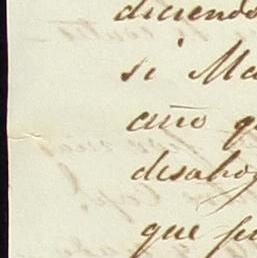 diciendo
si Ma
año q
desaho
que pu